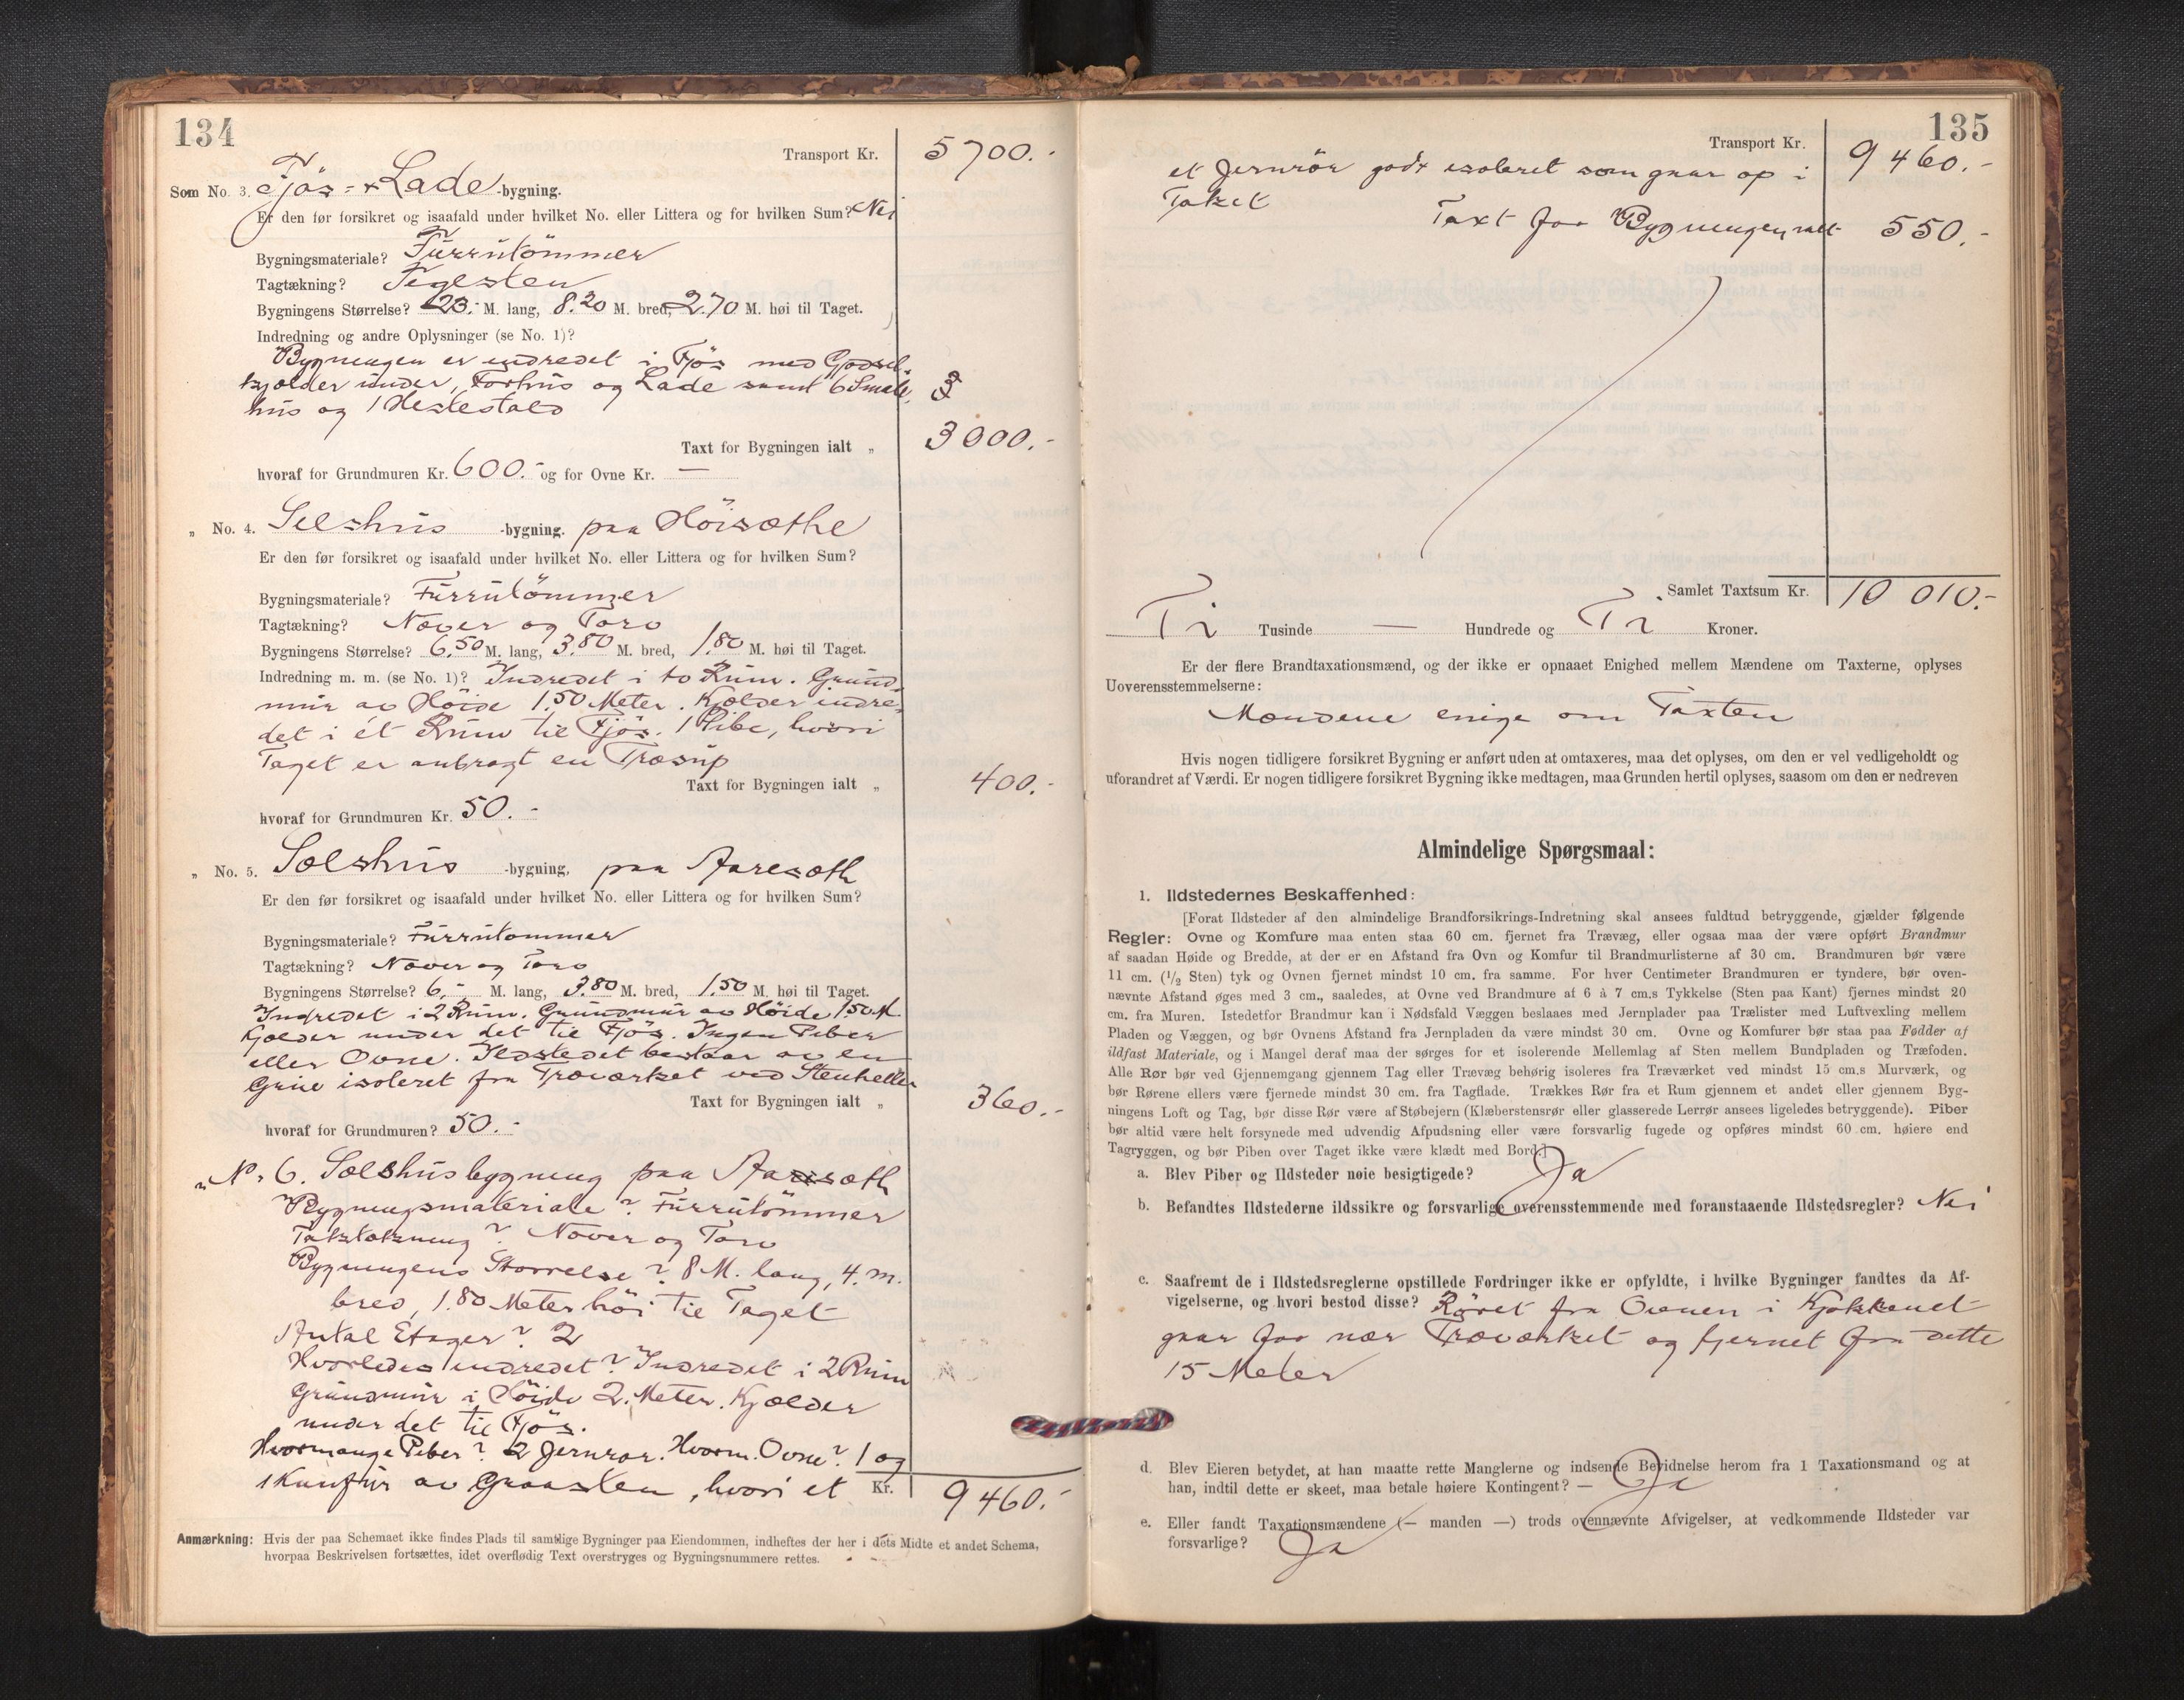 134
Transport Kr. 5700.-
Som No. 3. Fjös- & Lade -bygning.
Er den før forsikret og isaafald under hvilket No. eller Littera og for hvilken Sum? Nei
Bygningsmateriale? Furrutömmer
Tagtækning? Tegesten
Bygningens Størrelse? 23.- M. lang, 8.20 M. bred, 2.70 M. høi til Taget.
Indredning og andre Oplysninger (se No. 1)?
Bygningen er indredet i Fjös med Gjødsel-
kjælder under, Forhus og Lade samt 6 Smale-
hus og 1 Hestestald
Taxt for Bygningen ialt „ 3000.-
hvoraf for Grundmuren Kr. 600.- og for Ovne Kr. —
„ No. 4. Selshus -bygning. paa Höisæthe
Er den før forsikret og isaafald under hvilket No. eller Littera og for hvilken Sum?
Bygningsmateriale? Furrutömmer
Tagtækning? Næver og Torv
Bygningens Størrelse? 6.50 M. lang, 3.80 M. bred, 1.80 M. høi til Taget.
Indredning m. m. (se No. 1)? Indredet i to Rum. Grund-
mur av Höide 1.50 Meter. Kjælder indre-
det i ét Rum til Fjös. 1 Pibe, hvori
Taget er anbragt en Træsup
Taxt for Bygningen ialt „ 400.-
hvoraf for Grundmuren Kr. 50.-
„ No. 5. Sælshus -bygning, paa Aaresæth
Er den før forsikret og isaafald under hvilket No. eller Littera og for hvilken Sum?
Bygningsmateriale? Furrutommer
Tagtækning? Næver og Torv
Bygningens Størrelse? 6.- M. lang, 3.80 M. bred, 1.50 M. høi til Taget.
Indredet i 2 Rum. Grundmur av Höide 1.50 M.
Kjælder under det til Fjös. Ingen Piber
eller Ovne. Ildstedet bestaar av en
Grue isoleret fra Træværket ved Stenheller
Taxt for Bygningen ialt „ 360.-
hvoraf for Grundmuren? 50.-
„ No. 6. Sælshusbygning paa Aaresæth
Bygningsmateriale? Furrutömmer
Taktækning? Næver og Torv
Bygningens Størrelse? 8 M. lang, 4. m.
bred, 1.80 Meter höi til Taget
Antal Etager? 2
Hvorledes indredet? Indredet i 2 Rum
Grundmur i Höide 2. Meter. Kjælder
under det til Fjös.
Hvormange Piber? 2 Jernrør. Hvorm. Ovne? 1 og
1 Komfur av Graasten, hvori et Kr. 9460.-
Anmærkning: Hvis der paa Schemaet ikke findes Plads til samtlige Bygninger paa Eiendommen, indheftes der her i dets Midte et andet Schema,
hvorpaa Beskrivelsen fortsættes, idet overflødig Text overstryges og Bygningsnummere rettes.
135
Transport Kr. 9460.-
et Jernrör godt isoleret som gaar op i
Taket
Taxt for Bygningen ialt 550.-
Samlet Taxtsum Kr. 10 010.-
Ti Tusinde — Hundrede og Ti Kroner.
Er der flere Brandtaxationsmænd, og der ikke er opnaaet Enighed mellem Mændene om Taxterne, oplyses
Uoverensstemmelserne:
Mændene enige om Taxten
Hvis nogen tidligere forsikret Bygning er anført uden at omtaxeres, maa det oplyses, om den er vel vedligeholdt og
uforandret af Værdi. Er nogen tidligere forsikret Bygning ikke medtagen, maa Grunden hertil oplyses, saasom om den er nedreven
Almindelige Spørgsmaal:
1. Ildstedernes Beskaffenhed:
[Forat Ildsteder af den almindelige Brandforsikrings-Indretning skal ansees fuldtud betryggende, gjælder følgende
Regler: Ovne og Komfure maa enten staa 60 cm. fjernet fra Trævæg, eller ogsaa maa der være opført Brandmur
af saadan Høide og Bredde, at der er en Afstand fra Ovn og Komfur til Brandmurlisterne af 30 cm. Brandmuren bør være
11 cm. (1/2 Sten) tyk og Ovnen fjernet mindst 10 cm. fra samme. For hver Centimeter Brandmuren er tyndere, bør oven-
nævnte Afstand øges med 3 cm., saaledes, at Ovne ved Brandmure af 6 à 7 cm.s Tykkelse (Sten paa Kant) fjernes mindst 20
cm. fra Muren. Istedetfor Brandmur kan i Nødsfald Væggen beslaaes med Jernplader paa Trælister med Luftvexling mellem
Pladen og Væggen, og bør Ovnens Afstand fra Jernpladen da være mindst 30 cm. Ovne og Komfurer bør staa paa Fødder af
ildfast Materiale, og i Mangel deraf maa der sørges for et isolerende Mellemlag af Sten mellem Bundpladen og Træfoden.
Alle Rør bør ved Gjennemgang gjennem Tag eller Trævæg behørig isoleres fra Træværket ved mindst 15 cm.s Murværk, og
bør Rørene ellers være fjernede mindst 30 cm. fra Tagflade. Trækkes Rør fra et Rum gjennem et andet eller gjennem Byg-
ningens Loft og Tag, bør disse Rør være af Støbejern (Klæberstensrør eller glasserede Lerrør ansees ligeledes betryggende). Piber
bør altid være helt forsynede med udvendig Afpudsning eller være forsvarlig fugede og opføres mindst 60 cm. høiere end
Tagryggen, og bør Piben over Taget ikke være klædt med Bord.]
a. Blev Piber og Ildsteder nøie besigtigede? Ja
b. Befandtes Ildstederne ildssikre og forsvarlige overensstemmende med foranstaaende Ildstedsregler? Nei
c. Saafremt de i Ildstedsreglerne opstillede Fordringer ikke er opfyldte, i hvilke Bygninger fandtes da Af-
vigelserne, og hvori bestod disse? Röret fra Ovnen i Kjøkkenet
gaar for nær Træværket og fjernet fra dette
15 Meter
d. Blev Eieren betydet, at han maatte rette Manglerne og indsende Bevidnelse herom fra 1 Taxationsmand og at
han, indtil dette er skeet, maa betale høiere Kontingent? — Ja
e. Eller fandt Taxationsmændene (— manden —) trods ovennævnte Afvigelser, at vedkommende Ildsteder var
forsvarlige? Ja